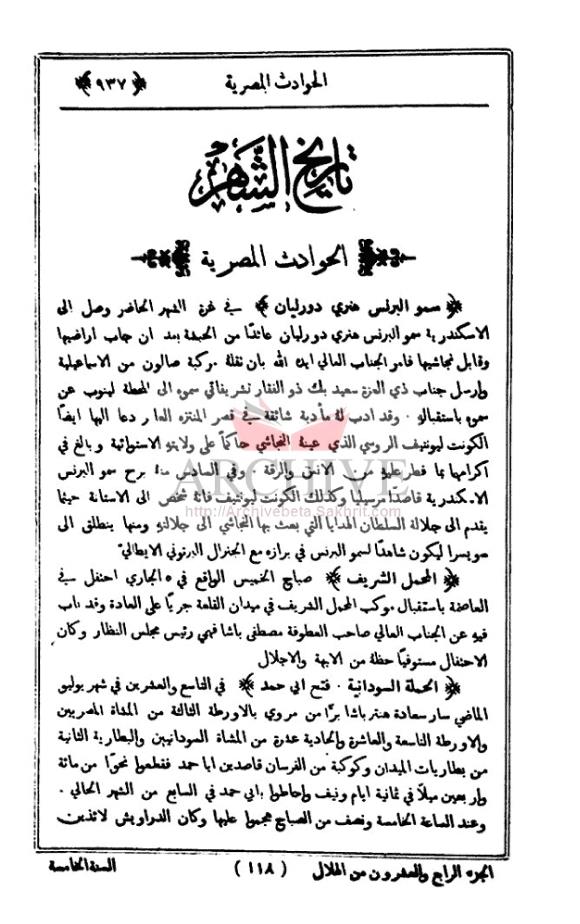 الحوادث المصرية
﴿ ٩٣٧ ﴾
تاريخ الشهر
الحوادث المصرية
﴿ سمو البرنس هنري دورليان ﴾ في غرة الشهر الحاضر وصل الى
الاسكندرية سمو البرنس هنري دورليان عائدًا من الحبشة بعد ان جاب اراضيها
وقابل نجاشيها فامر الجناب العالي ايده الله بان تقله مركبة صالون من الاسماعيلية
وارسل جناب ذي العزة سعيد بك ذو الفقار تشريفاتي سموه الى المحطة لينوب عن
سموه باستقباله . وقد ادب له مأدبة شائقة في قصر المنتزه العامر دعا اليها ايضًا
الكونت ليونتيف الروسي الذي عينه النجاشي حاكمًا على ولايته الاستوائية وبالغ في
اكرامها بما فطر عليه من الانس والرقة . وفي السادس منه برح سمو البرنس
الاسكندرية قاصدًا مرسيليا وكذلك الكونت ليونتيف فانه شخص الى الاستانة حيثما
يقدم الى جلالة السلطان الهدايا التي بعث بها النجاشي الى جلالته ومنها ينطلق الى
سويسرا ليكون شاهدًا لسمو البرنس في برازه مع الجنرال البرتوني الايطالي
﴿ المحمل الشريف ﴾ صباح الخميس الواقع في ٥ الجاري احتفل في
العاصمة باستقبال موكب المحمل الشريف في ميدان القلعة جريًا على العادة وقد ناب
فيه عن الجناب العالي صاحب العطوفة مصطفى باشا فهمي رئيس مجلس النظار وكان
الاحتفال مستوفيًا حظه من الابهة والاجلال
﴿ الحملة السودانية . فتح ابي حمد ﴾ في التاسع والعشرين في شهر يوليو
الماضي سار سعادة هنتر باشا برًّا من مروي بالاورطة الثالثة من المشاة المصريين
والاورطة التاسعة والعاشرة والحادية عشرة من المشاة السودانيين والبطارية الثانية
من بطاريات الميدان وكوكبة من الفرسان قاصدين ابا حمد فقطعوا نحوًا من مائة
واربعين ميلًا في ثمانية ايام ونيف واحاطوا بابي حمد في السابع من الشهر الحالي .
وعند الساعة الخامسة ونصف من الصباح هجموا عليها وكان الدراويش لائذين
الجزء الرابع والعشرون من الهلال ( ١١٨ ) السنة الخامسة
ARCHIVE
http://Archivebeta.Sakhrit.com